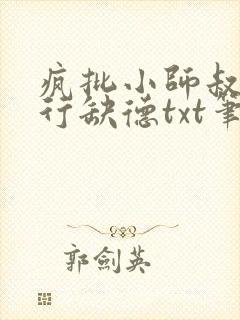 疯批小师叔
行缺德txt笔
郭劍英